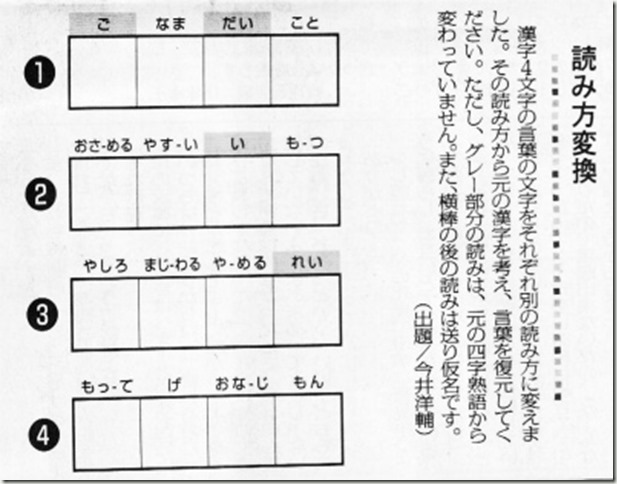 読み方変換
漢字4文字の言葉の文字をそれぞれ別の読み方に変えま
した。その読み方から元の漢字を考え、言葉を復元してく
ださい。ただし、グレー部分の読みは、元の四字熟語から
変わっていません。また、横棒の後の読みは送り仮名です。
(出題/今井洋輔)
❶
ご なま だい こと
❷
おさ-める やす-い い も-つ
❸
やしろ まじ-わる や-める れい
❹
もっ-て げ おな-じ もん